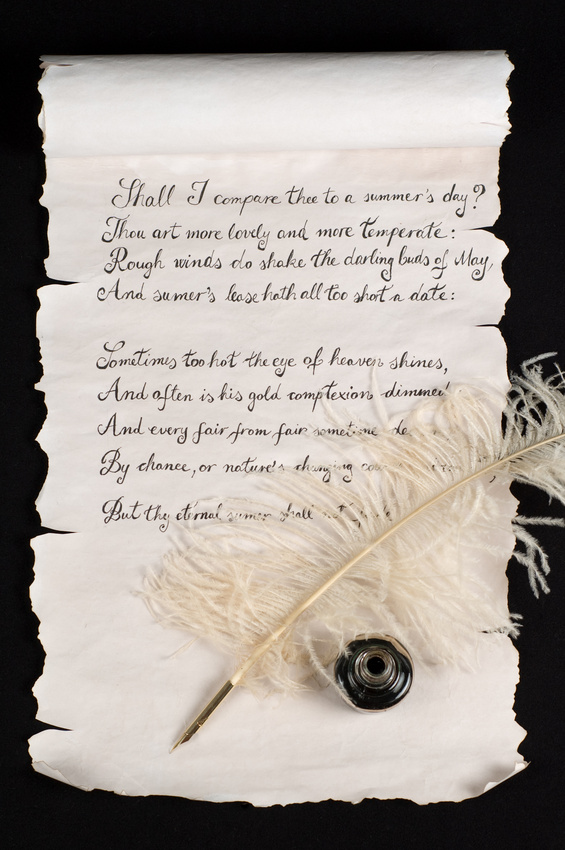 Shall I compare thee to a summer's day?
Thou art more lovely and more temperate:
Rough winds do shake the darling buds of May,
And sumer's lease hath all too short a date:
Sometimes too hot the eye of heaven shines,
And often is his gold comptexion dimmed
And every fair from fair sometime de
By chance, or nature's changing
But thy eternal sumer shall not